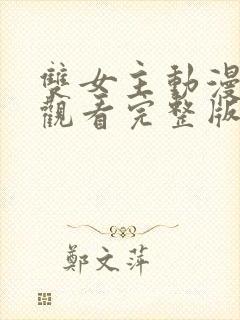 雙女主動漫
觀看完整版
鄭文萍